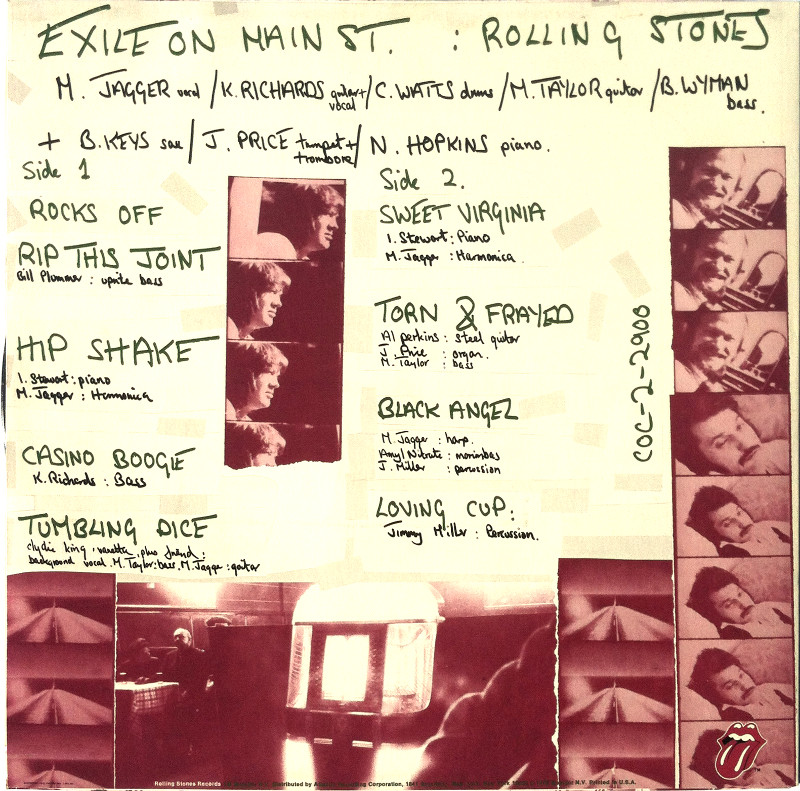 EXILE ON MAIN ST. : ROLLING STONES
M. JAGGER vocal / K. RICHARDS guitar + vocal / C. WATTS drums / M. TAYLOR guitar / B. WYMAN bass.
+ B. KEYS sax / J. PRICE trumpet + trombone / N. HOPKINS piano.
Side 1
ROCKS OFF
RIP THIS JOINT
Bill Plummer : uprite bass
HIP SHAKE
I. Stewart : piano
M. Jagger : Harmonica
CASINO BOOGIE
K. Richards : Bass
TUMBLING DICE
clydie king, vanetta, plus friend :
background vocal. M. Taylor : bass. M. Jagger : guitar
Side 2.
SWEET VIRGINIA
I. Stewart : Piano
M. Jagger : Harmonica.
TORN & FRAYED
Al perkins : steel guitar
J. Price : organ.
M. Taylor : bass
BLACK ANGEL
M. Jagger : harp.
Amyl Nitrate : marimbas
J. Miller : percussion
LOVING CUP :
Jimmy Miller : Percussion.
COC-2-2900
Rolling Stones Records Distributed by Corporation, 1841 N.V. Printed in U.S.A.